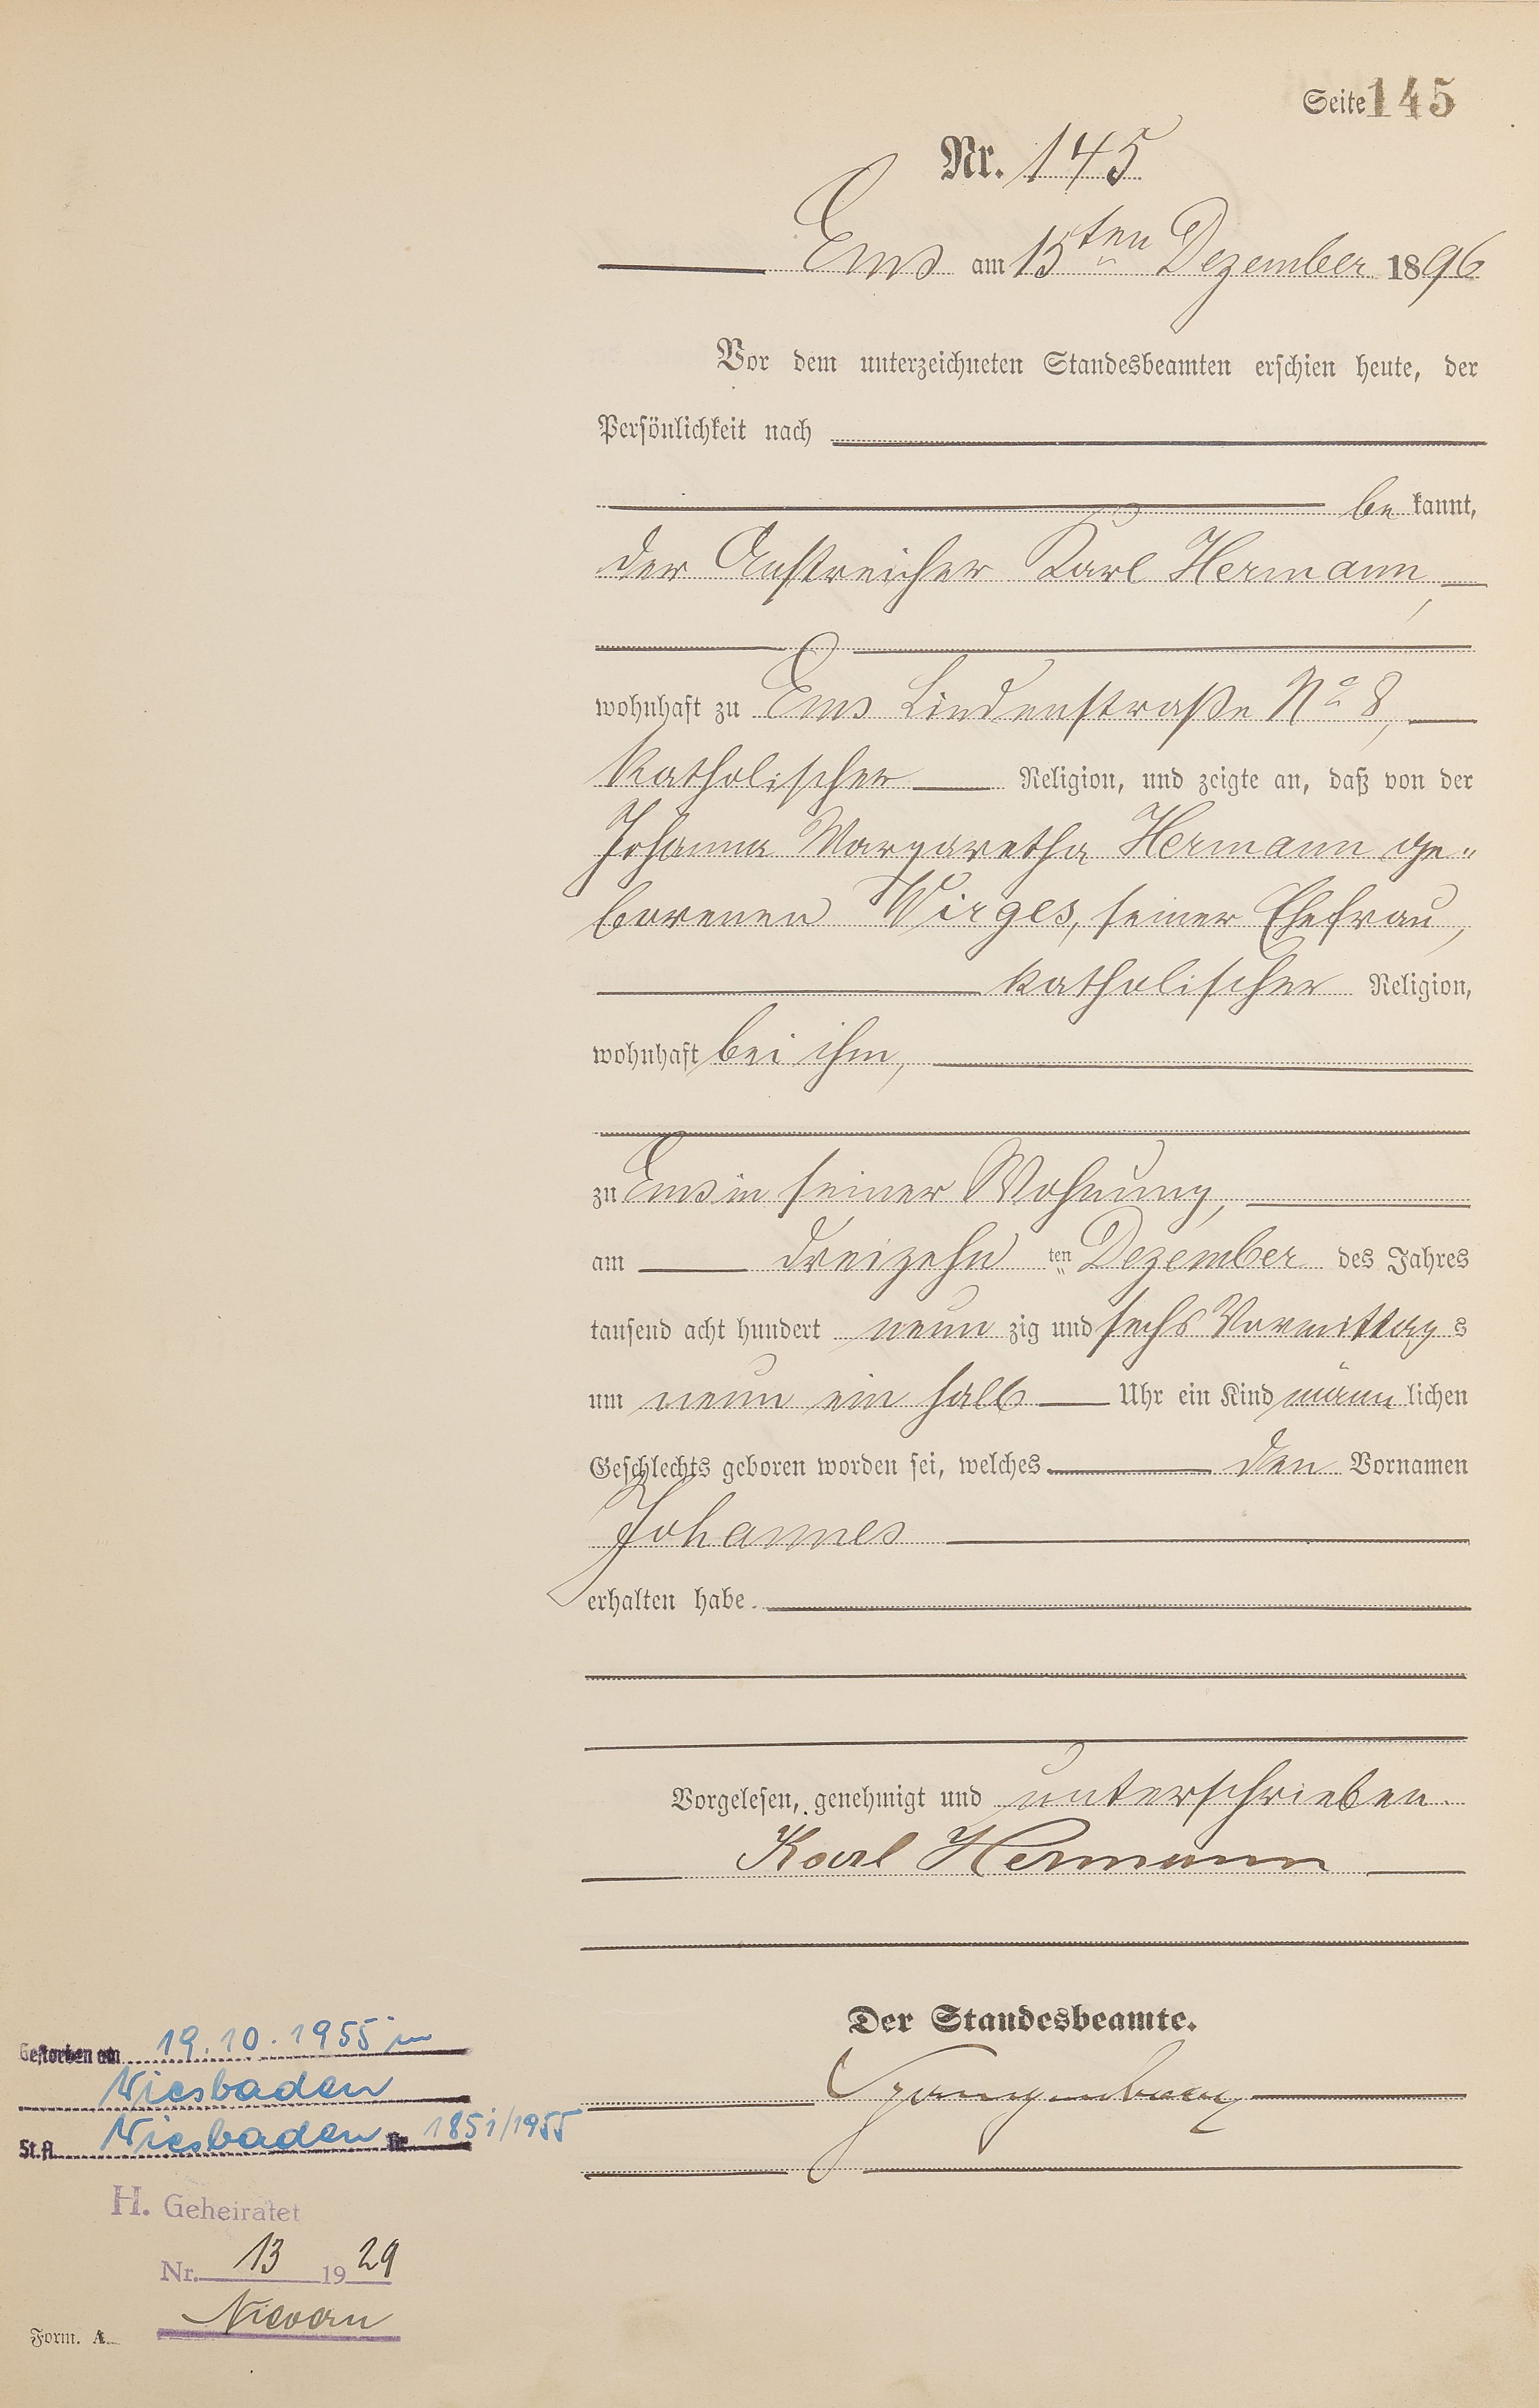 Seite 145
Nr. 145
Ems am 15ten Dezember 1896
Vor dem unterzeichneten Standesbeamten erschien heute, der
Persönlichkeit nach
be kannt,
der Anstreicher Karl Hermann,
wohnhaft zu Ems Lindenstraße No 8,
katholischer Religion, und zeigte an, daß von der
Johanna Margaretha Hermann ge„
borenen Wirges, seiner Ehefrau,
katholischer Religion,
wohnhaft bei ihm,
zu Ems in seiner Wohnung,
am dreizehn ten Dezember des Jahres
tausend acht hundert neun zig und sechs Vormittag s
um neun ein halb Uhr ein Kind männ lichen
Geschlechts geboren worden sei, welches den Vornamen
Johannes
erhalten habe.
Vorgelesen, genehmigt und unterschrieben.
Karl Hermann
Der Standesbeamte.
Gestorben am 19.10.1955 in
Wiesbaden
St.A. Wiesbaden Nr 1851/1955
H. Geheiratet
Nr. 13 1929
Nievern
Form. A.